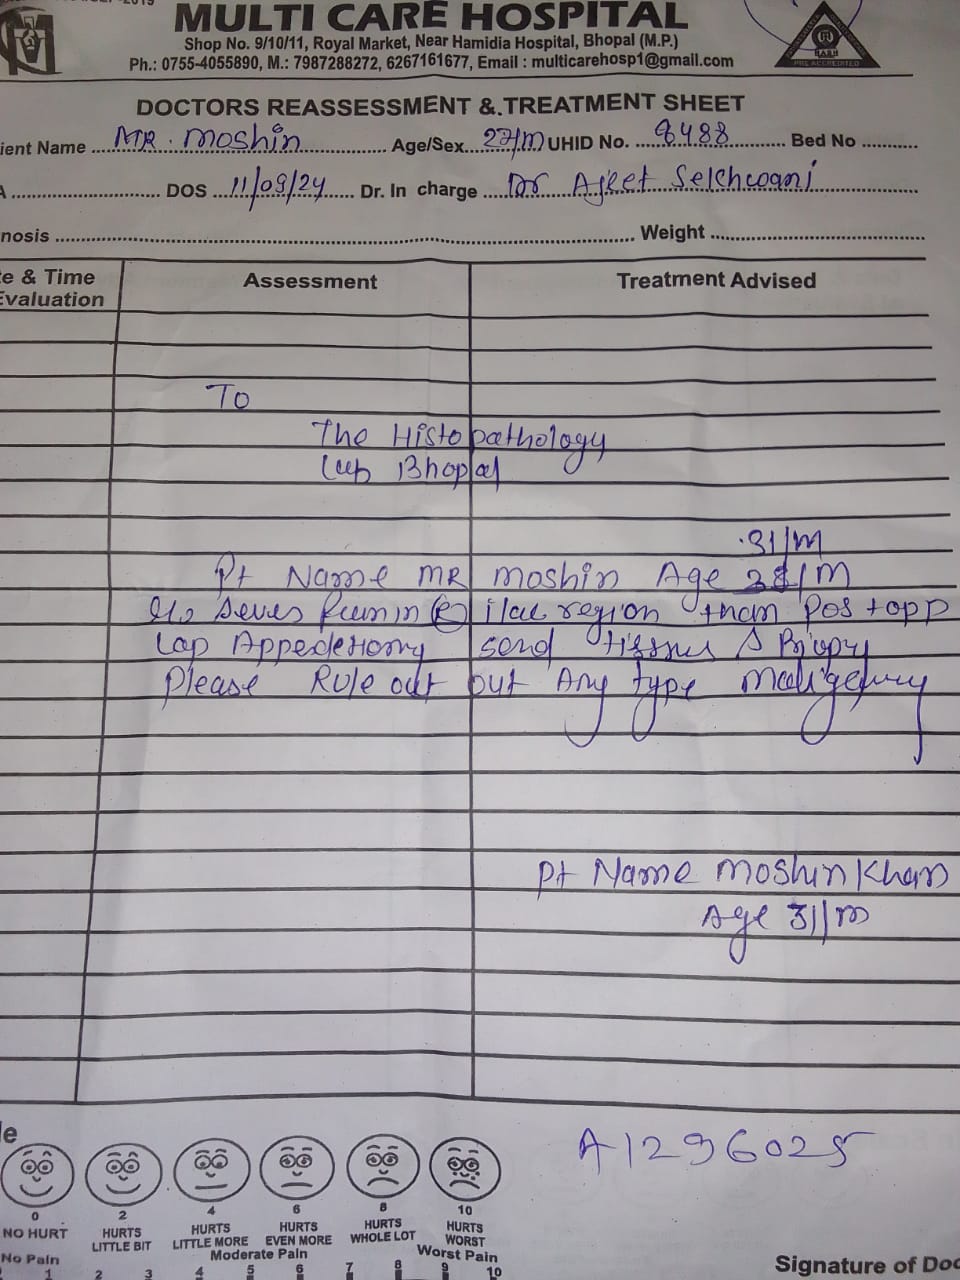 MULTI CARE HOSPITAL
Shop No. 9/10/11, Royal Market, Near Hamidia Hospital, Bhopal (M.P.)
Ph.: 0755-4055890, M.: 7987288272, 6267161677, Email : multicarehosp1@gmail.com
DOCTORS REASSESSMENT & TREATMENT SHEET
ient Name MR. Moshin Age/Sex UHID No. 8488 Bed No
DOS 11/09/24 Dr. In charge Dr Ajeet
nosis Weight
te & Time Assessment Treatment Advised
Evaluation
To
The Histopathology
Bhopal
31/M
Pt Name MR Moshin Age /M
in (R) region than Pos topp
Lap send A
Please Rule out out Any type
Pt Name Moshin Khan
Age 31/M
le
A1296025
0 2 4 6 8 10
NO HURT HURTS LITTLE BIT HURTS LITTLE MORE HURTS EVEN MORE HURTS WHOLE LOT HURTS WORST
No Pain Moderate Pain Worst Pain
1 2 3 4 5 6 7 8 9 10
Signature of Doc